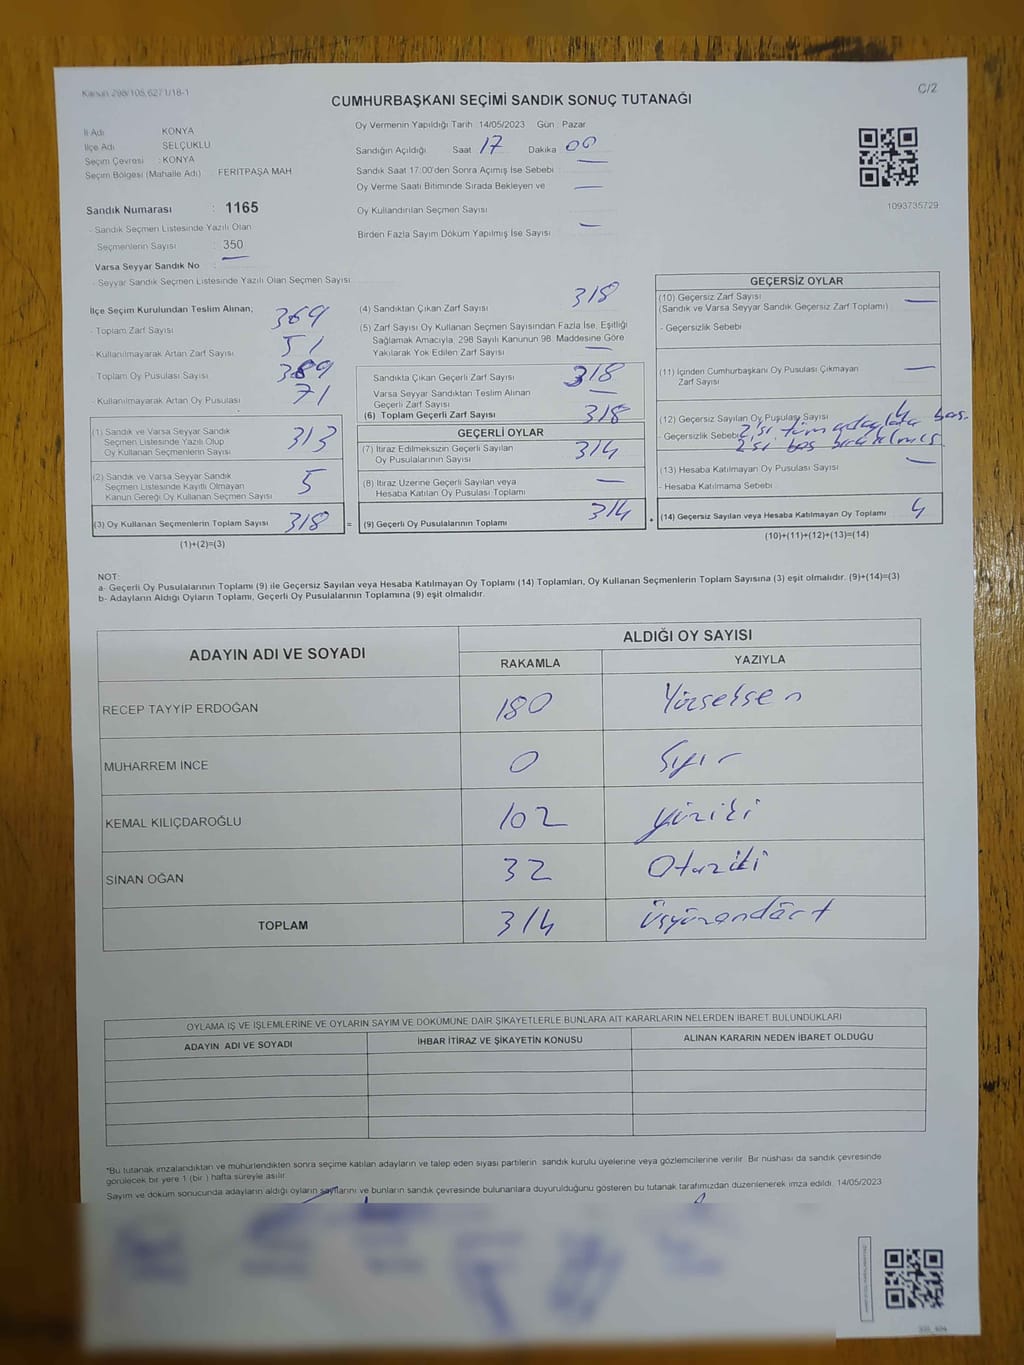 Kanun 298/105,6271/18-1
C/2
CUMHURBAŞKANI SEÇİMİ SANDIK SONUÇ TUTANAĞI
İl Adı KONYA
İlçe Adı SELÇUKLU
Seçim Çevresi : KONYA
Seçim Bölgesi (Mahalle Adı) : FERİTPAŞA MAH
Sandık Numarası : 1165
- Sandık Seçmen Listesinde Yazılı Olan
Seçmenlerin Sayısı : 350
Varsa Seyyar Sandık No :
- Seyyar Sandık Seçmen Listesinde Yazılı Olan Seçmen Sayısı
Oy Vermenin Yapıldığı Tarih : 14/05/2023 Gün : Pazar
Sandığın Açıldığı Saat 17 Dakika 00
Sandık Saat 17:00'den Sonra Açımış İse Sebebi
Oy Verme Saati Bitiminde Sırada Bekleyen ve
Oy Kullandırılan Seçmen Sayısı
Birden Fazla Sayım Döküm Yapılmış İse Sayısı
1093735729
İlçe Seçim Kurulundan Teslim Alınan;
- Toplam Zarf Sayısı 369
- Kullanılmayarak Artan Zarf Sayısı 51
- Toplam Oy Pusulası Sayısı 389
- Kullanılmayarak Artan Oy Pusulası 71
(1) Sandık ve Varsa Seyyar Sandık
Seçmen Listesinde Yazılı Olup
Oy Kullanan Seçmenlerin Sayısı 313
(2) Sandık ve Varsa Seyyar Sandık
Seçmen Listesinde Kayıtlı Olmayan
Kanun Gereği Oy Kullanan Seçmen Sayısı 5
(3) Oy Kullanan Seçmenlerin Toplam Sayısı 318 =
(1)+(2)=(3)
(4) Sandıktan Çıkan Zarf Sayısı 318
(5) Zarf Sayısı Oy Kullanan Seçmen Sayısından Fazla İse, Eşitliği
Sağlamak Amacıyla, 298 Sayılı Kanunun 98. Maddesine Göre
Yakılarak Yok Edilen Zarf Sayısı
Sandıkta Çıkan Geçerli Zarf Sayısı 318
Varsa Seyyar Sandıktan Teslim Alınan
Geçerli Zarf Sayısı
(6) Toplam Geçerli Zarf Sayısı 318
GEÇERLİ OYLAR
(7) İtiraz Edilmeksizin Geçerli Sayılan
Oy Pusulalarının Sayısı 314
(8) İtiraz Üzerine Geçerli Sayılan veya
Hesaba Katılan Oy Pusulası Toplamı
(9) Geçerli Oy Pusulalarının Toplamı 314 +
GEÇERSİZ OYLAR
(10) Geçersiz Zarf Sayısı
(Sandık ve Varsa Seyyar Sandık Geçersiz Zarf Toplamı)
- Geçersizlik Sebebi
(11) İçinden Cumhurbaşkanı Oy Pusulası Çıkmayan
Zarf Sayısı
(12) Geçersiz Sayılan Oy Pusulası Sayısı 4
- Geçersizlik Sebebi 2'si tüm adaylara bas.
2'si boş bırakılmış
(13) Hesaba Katılmayan Oy Pusulası Sayısı
- Hesaba Katılmama Sebebi
(14) Geçersiz Sayılan veya Hesaba Katılmayan Oy Toplamı 4
(10)+(11)+(12)+(13)=(14)
NOT:
a- Geçerli Oy Pusulalarının Toplamı (9) ile Geçersiz Sayılan veya Hesaba Katılmayan Oy Toplamı (14) Toplamları, Oy Kullanan Seçmenlerin Toplam Sayısına (3) eşit olmalıdır. (9)+(14)=(3)
b- Adayların Aldığı Oyların Toplamı, Geçerli Oy Pusulalarının Toplamına (9) eşit olmalıdır.
ADAYIN ADI VE SOYADI
ALDIĞI OY SAYISI
RAKAMLA YAZIYLA
RECEP TAYYİP ERDOĞAN 180 Yüzseksen
MUHARREM İNCE 0 Sıfır
KEMAL KILIÇDAROĞLU 102 yüziki
SİNAN OĞAN 32 Otuziki
TOPLAM 314 Üçyüzondört
OYLAMA İŞ VE İŞLEMLERİNE VE OYLARIN SAYIM VE DÖKÜMÜNE DAİR ŞİKAYETLERLE BUNLARA AİT KARARLARIN NELERDEN İBARET BULUNDUKLARI
ADAYIN ADI VE SOYADI İHBAR İTİRAZ VE ŞİKAYETİN KONUSU ALINAN KARARIN NEDEN İBARET OLDUĞU
*Bu tutanak imzalandıktan ve mühürlendikten sonra seçime katılan adayların ve talep eden siyasi partilerin sandık kurulu üyelerine veya gözlemcilerine verilir. Bir nüshası da sandık çevresinde
görülecek bir yere 1 (bir) hafta süreyle asılır.
Sayım ve döküm sonucunda adayların aldığı oyların sayılarını ve bunların sandık çevresinde bulunanlara duyurulduğunu gösteren bu tutanak tarafımızdan düzenlenerek imza edildi. 14/05/2023